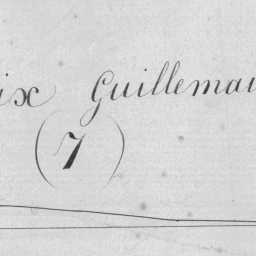 ix Guillemai
(7)